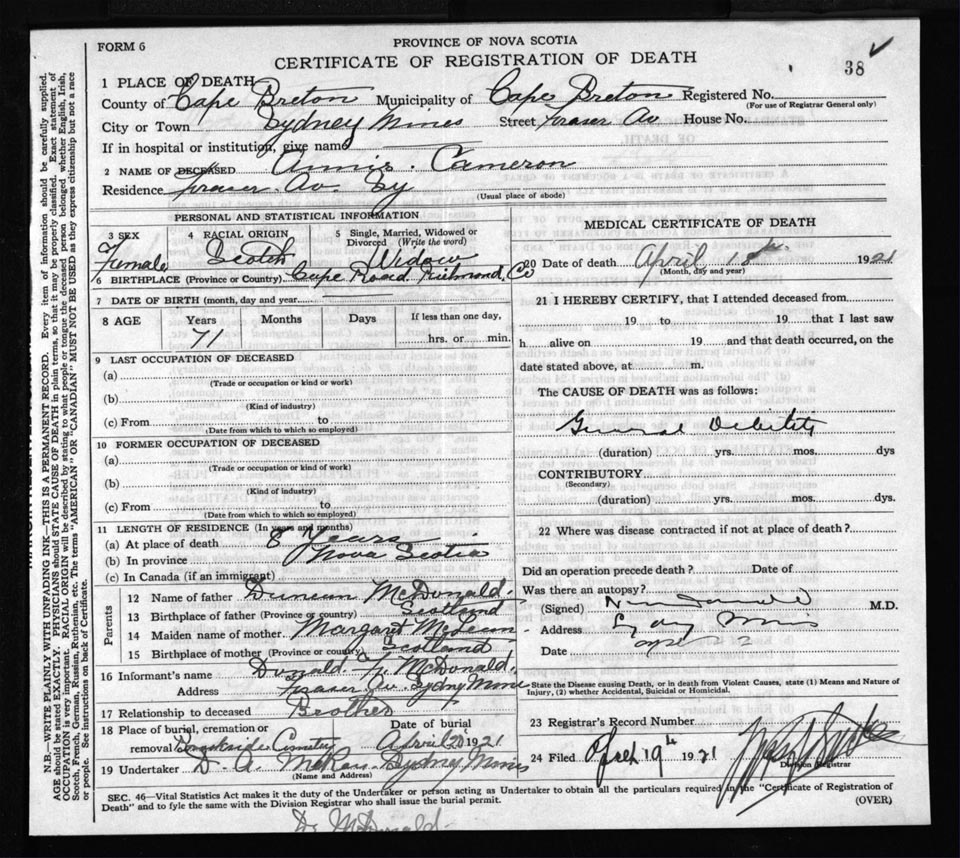 FORM 6
PROVINCE OF NOVA SCOTIA
CERTIFICATE OF REGISTRATION OF DEATH
38
1 PLACE OF DEATH
County of Cape Breton Municipality of Cape Breton Registered No.
(For use of Registrar General only)
City or Town Sydney Mines Street Fraser Av House No.
If in hospital or institution, give name
2 NAME OF DECEASED Annie Cameron
Residence Fraser Av Sy
(Usual place of abode)
PERSONAL AND STATISTICAL INFORMATION
3 SEX Female
4 RACIAL ORIGIN Scotch
5 Single, Married, Widowed or Divorced (Write the word) Widow
6 BIRTHPLACE (Province or Country) Cape Road Richmond Co
7 DATE OF BIRTH (month, day and year)
8 AGE Years Months Days If less than one day,
71 hrs. or min.
9 LAST OCCUPATION OF DECEASED
(a)
(Trade or occupation or kind or work)
(b)
(Kind of industry)
(c) From to
(Date from which to which so employed)
10 FORMER OCCUPATION OF DECEASED
(a)
(Trade or occupation or kind of work)
(b)
(Kind of industry)
(c) From to
(Date from which to which so employed)
11 LENGTH OF RESIDENCE (In years and months)
(a) At place of death 8 Years
(b) In province Nova Scotia
(c) In Canada (if an immigrant)
Parents
12 Name of father Duncan McDonald
13 Birthplace of father (Province or country) Scotland
14 Maiden name of mother Margaret McLean
15 Birthplace of mother (Province or country) Scotland
16 Informant's name Donald McDonald
Address Fraser Av Sydny Mines
17 Relationship to deceased Brother
18 Place of burial, cremation or removal Cemetery
Date of burial April 20 1921
19 Undertaker D. A. Sydny Mines
(Name and Address)
MEDICAL CERTIFICATE OF DEATH
20 Date of death April 18th 1921
(Month, day and year)
21 I HEREBY CERTIFY, that I attended deceased from
19 to 19 that I last saw
h alive on 19 and that death occurred, on the
date stated above, at m.
The CAUSE OF DEATH was as follows:
General Debility
(duration) yrs. mos. dys
CONTRIBUTORY
(Secondary)
(duration) yrs. mos. dys.
22 Where was disease contracted if not at place of death?
Did an operation precede death? Date of
Was there an autopsy?
(Signed) M.D.
Address Sydny Mines
Date Apr 22
State the Disease causing Death, or in death from Violent Causes, state (1) Means and Nature of
Injury, (2) whether Accidental, Suicidal or Homicidal.
23 Registrar's Record Number
24 Filed April 19th 1921
Division Registrar
SEC. 46—Vital Statistics Act makes it the duty of the Undertaker or person acting as Undertaker to obtain all the particulars required in the "Certificate of Registration of
Death" and to fyle the same with the Division Registrar who shall issue the burial permit.
(OVER)
Dr McDonald
N.B.—WRITE PLAINLY WITH UNFADING INK—THIS IS A PERMANENT RECORD. Every item of information should be carefully supplied.
AGE should be stated EXACTLY. PHYSICIANS should STATE CAUSE OF DEATH in plain terms, so that it may be properly classified. Exact statement of
OCCUPATION is very important. RACIAL ORIGIN will be described by stating to what people or tongue the deceased person belonged whether English, Irish,
Scotch, French, German, Russian, Ruthenian, etc. The terms "AMERICAN" OR "CANADIAN" MUST NOT BE USED as they express citizenship but not a race
or people. See instructions on back of Certificate.